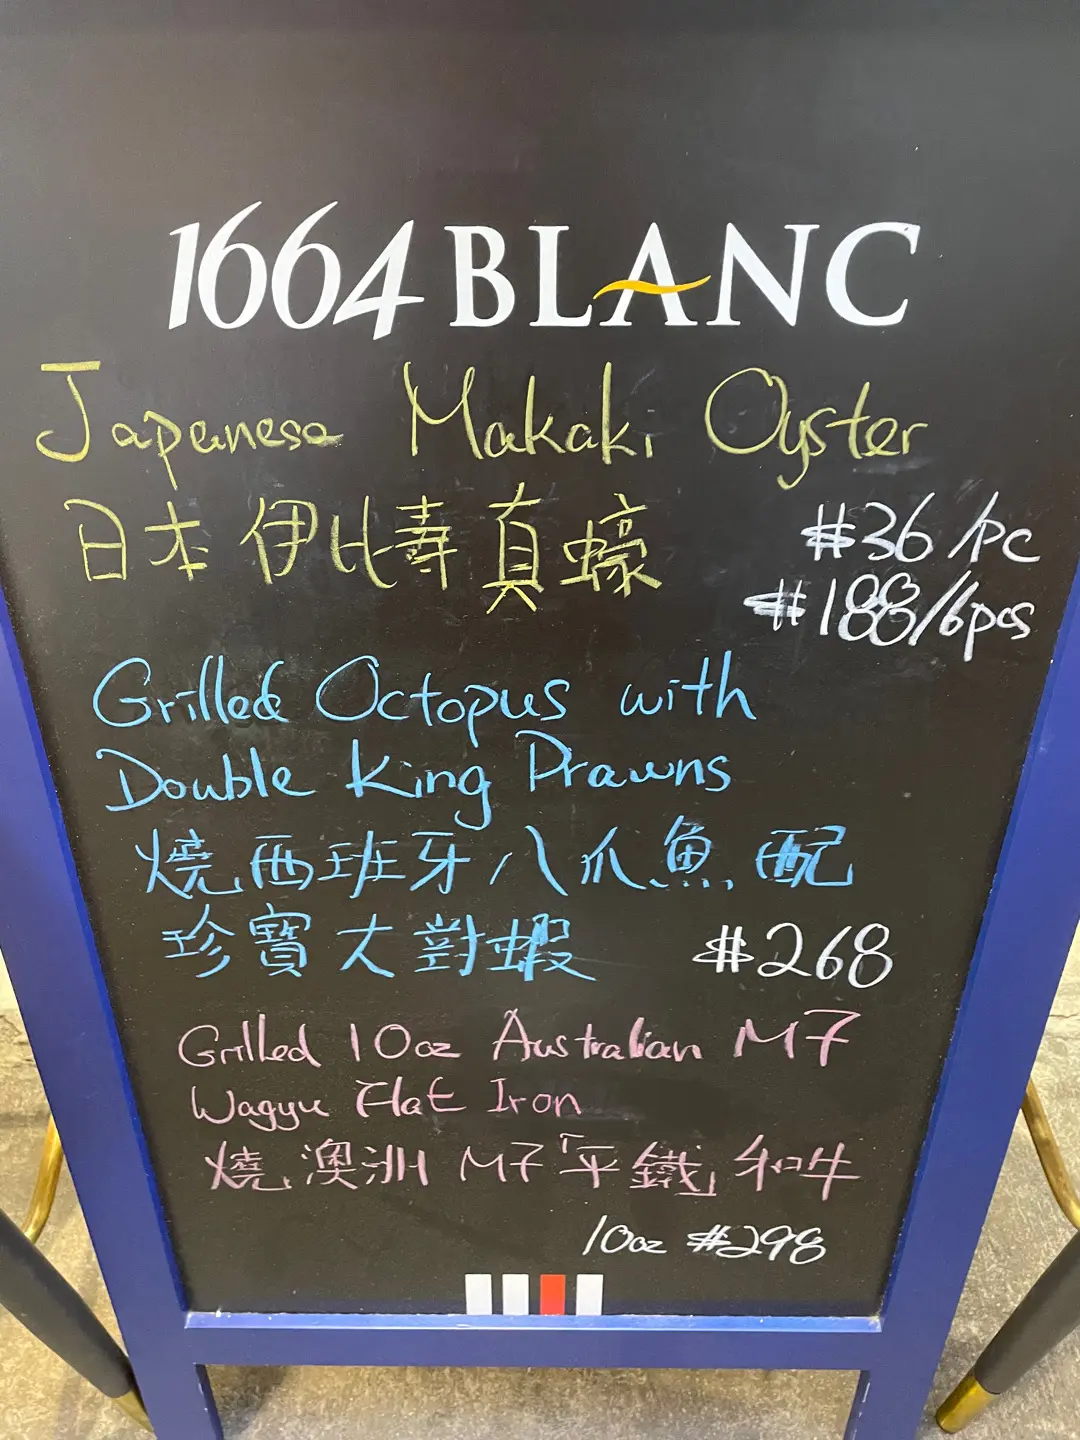 1664 BLANC
Japanese Makaki Oyster
日本伊比壽真蠔 #36/pc
#188/6pcs
Grilled Octopus with
Double King Prawns
燒西班牙八爪魚配
珍寶大對蝦 #268
Grilled 10oz Australian M7
Wagyu Flat Iron
燒澳洲M7「平鐵」和牛
10oz #298